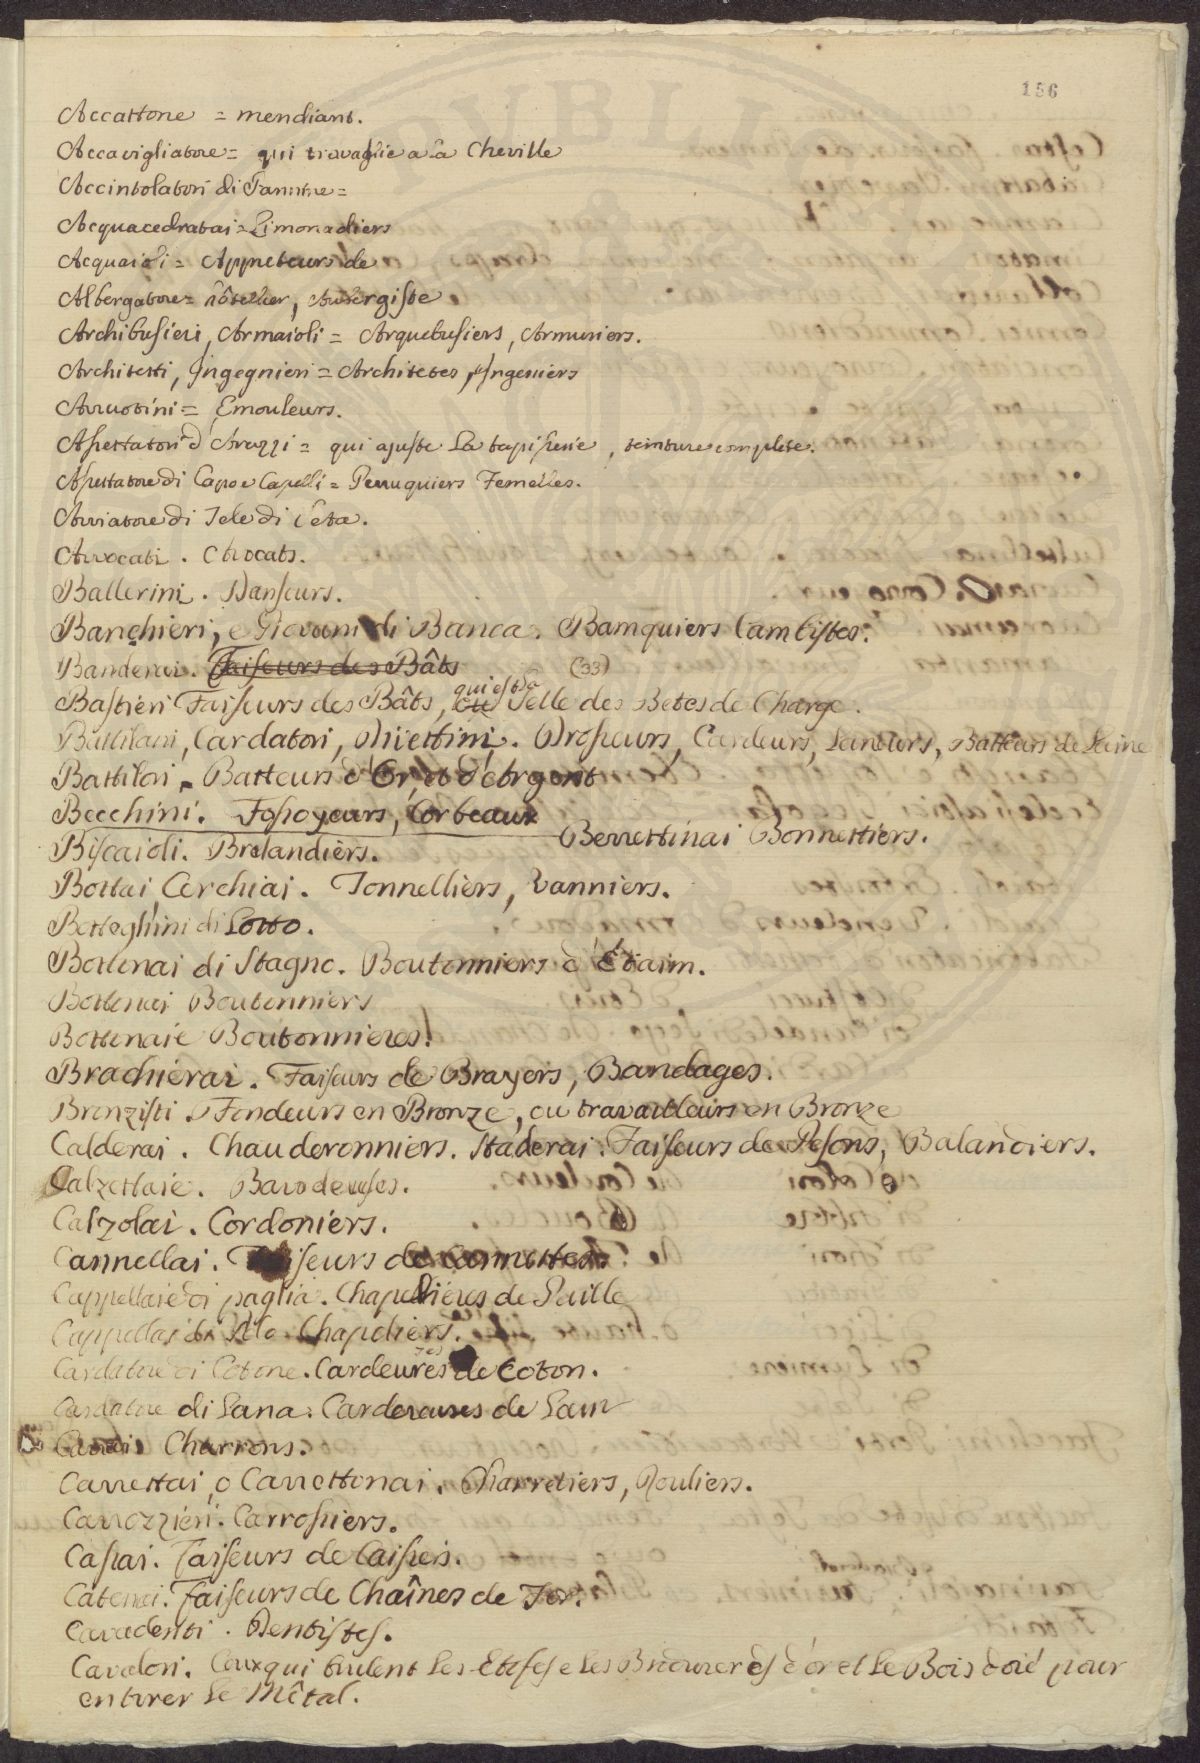 156
Accattone = mendiant.
Accavigliatore = qui travaglie a la Cheville
Accintolatori di Pannine =
Acquacedratai = Limonadiers
Acquaioli = Appreteurs de
Albergatore = hôtelier, Aubergiste
Archibusieri, Armaioli = Arquebusiers, Armuriers.
Architetti, Ingegnieri = Architetes, Ingeniers
Arruotini = Emouleurs.
Assettatori d'Arazzi = qui ajuste La tapisserie, teinture complete.
Assettatore di Capo e Capelli = Perruquiers Femelles.
Avviatore di Tele di Seta.
Avvocati. Avocats.
Ballerini. Danseurs.
Banchieri, e Giovani di Banca. Bamquiers Cambistes.
Banderai. Faiseurs des Bâts (33)
qui est la
Bastieri Faiseurs des Bâts, ou Selle des Betes de Charge.
Battilani, Cardatori, Divettini. Drosseurs, Cardeurs, Laineurs, Batteurs de Laine
Battilori. Batteurs d'Or, et d'Argent
Becchini. Fossoyeurs, Corbeaux
Berrettinai Bonnettiers.
Biscaioli. Brelandiers.
Bottai, Cerchiai. Tonnelliers, Vanniers.
Botteghini di Lotto.
Bottonai di Stagno. Boutonniers d'Etaim.
Bottonai Boutonniers
Bottonaie Boutonnieres.
Brachierai. Faiseurs de Brayers, Bandages.
Bronzisti. Fondeurs en Bronze, ou travailleurs en Bronze
Calderai. Chauderonniers. Staderai. Faiseurs de Pesons, Balanciers.
Calzettaie. Ravodeuses.
Calzolai. Cordoniers.
Cannellai. Faiseurs de Cannettes
Cappellaie di paglia. Chapellieres de Paille
Cappellai di Pelo Chapeliers.
Cardatore di Cotone. Cardeures de Coton.
Cardatore di Lana. Cardeuses de Lain
Carrai Charrons.
Carrettai, o Carrettonai. Charretiers, Rouliers.
Carrozzieri. Carrossiers.
Cassai. Faiseurs de Caisses.
Catenai. Faiseurs de Chaînes de Fer.
Cavadenti. Dentistes.
Cavalori. Ceux qui brulent les Etofes e les d'or et le Bois doré pour
en tirer le Mêtal.